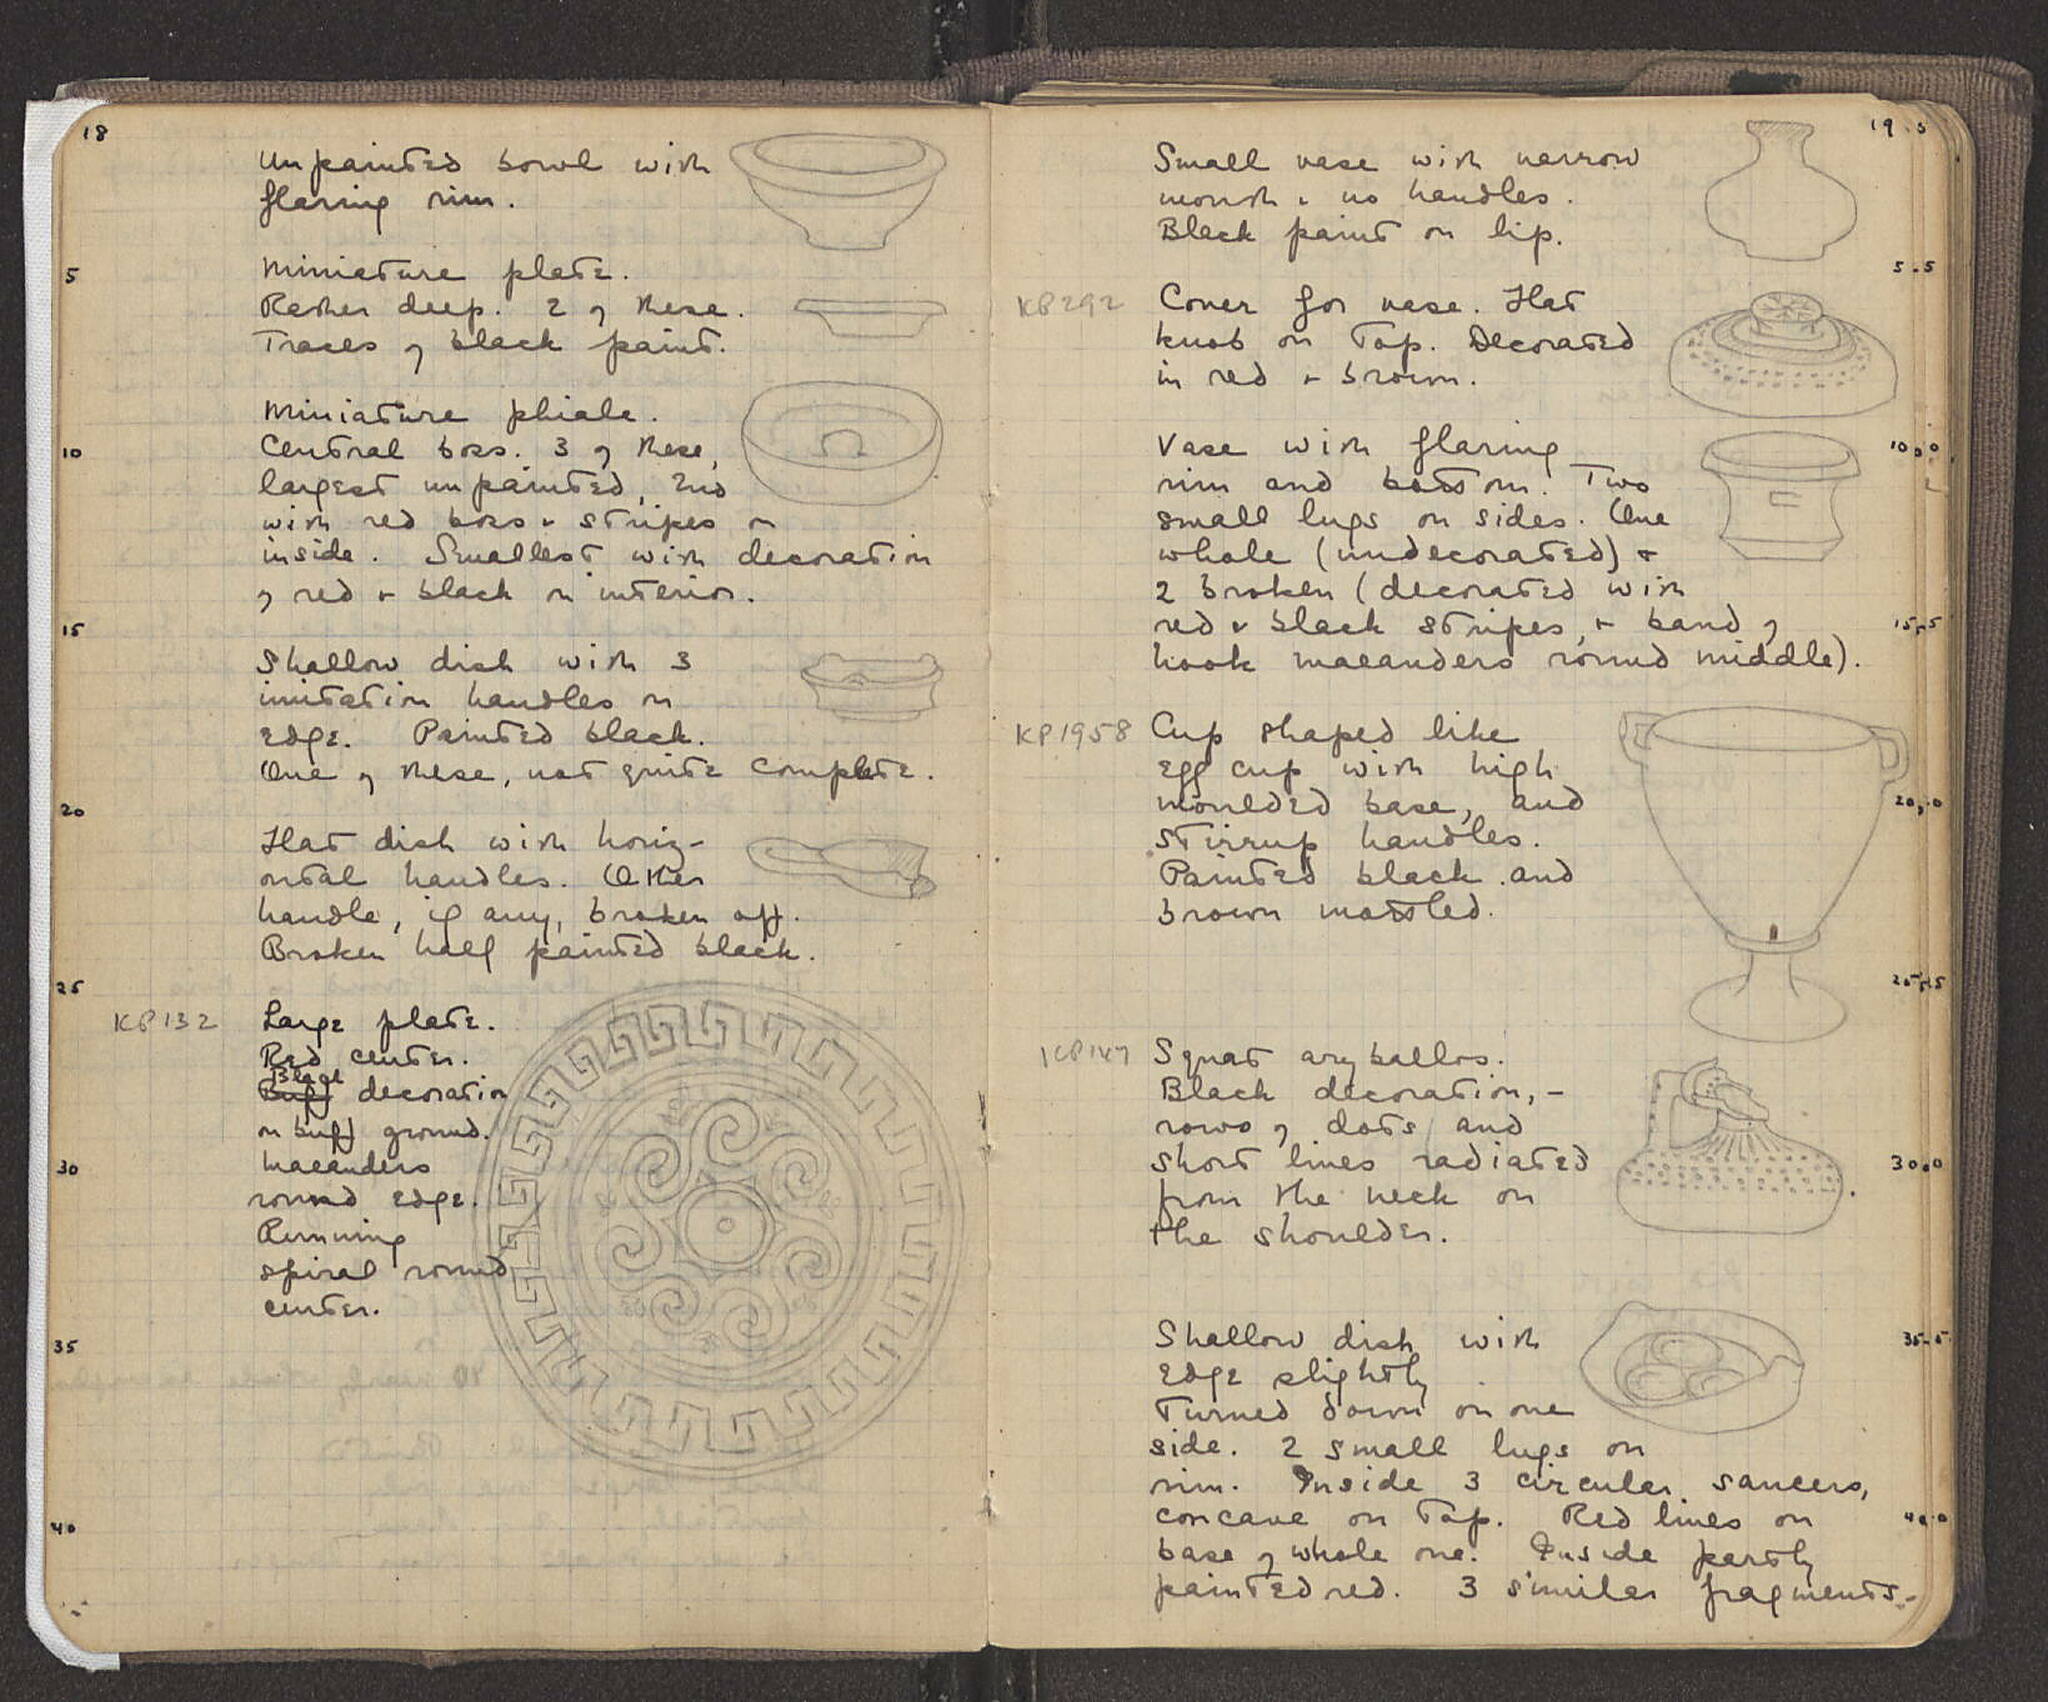 18
Unpainted bowl with
flaring rim.
5
Miniature plate.
Rather deep. 2 of these.
Traces of black paint.
Miniature phiale.
10
Central boss. 3 of these,
largest unpainted, 2nd
with red boss & stripes on
inside. Smallest with decoration
of red & black on interior.
15
Shallow dish with 3
imitation handles on
edge. Painted black.
One of these, not quite complete.
20
Flat dish with horiz-
ontal handles. Other
handle, if any, broken off.
Broken half painted black.
25
KP132 Large plate.
Red center.
Black
Buff decoration
on buff ground.
30
Maeanders
round edge.
Running
spiral round
center.
35
40
19
Small vase with narrow
mouth & no handles.
Black paint on lip.
5
KP292 Cover for vase. Flat
knob on top. Decorated
in red & brown.
10
Vase with flaring
rim and bottom. Two
small lugs on sides. One
whole (undecorated) &
2 broken (decorated with
15
red & black stripes, & band of
hook maeanders round middle).
KP1958 Cup shaped like
egg cup with high
20
moulded base, and
stirrup handles.
Painted black and
brown mottled.
25
Squat aryballos.
Black decoration, –
rows of dots and
30
short lines radiated
from the neck on
the shoulder.
35
Shallow dish with
edge slightly
turned down on one
side. 2 small lugs on
rim. Inside 3 circular saucers,
40
concave on top. Red lines on
base of whole one. Inside partly
painted red. 3 similar fragments.